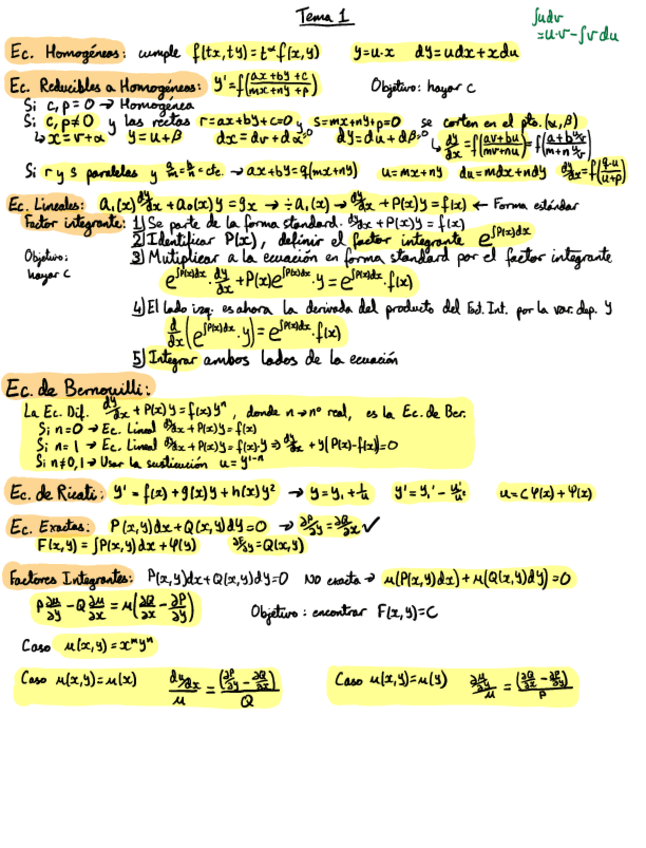 Tema 1
∫udv
=u·v-∫vdu
Ec. Homogéneas: cumple f(tx,ty)=t^α f(x,y) y=u·x dy=udx+xdu
Ec. Reducibles a Homogéneas: y'=f((ax+by+c)/(mx+ny+p)) Objetivo: hayar C
Si c,p=0 → Homogénea
Si c,p≠0 y las rectas r=ax+by+c=0 y s=mx+ny+p=0 se corten en el pto. (α,β)
↳ x=v+α y=u+β dx=dv+dα^0 dy=du+dβ^0 ↳ dy/dx=f((av+bu)/(mv+nu))=f((a+b u/v)/(m+n u/v))
Si r y s paralelas y a/m=b/n=cte. → ax+by=q(mx+ny) u=mx+ny du=mdx+ndy dy/dx=f((q·u)/(u+p))
Ec. Lineales: a₁(x) dy/dx + a₀(x)y = gx → ÷a₁(x) → dy/dx + P(x)y = f(x) ← Forma estándar
Factor integrante: 1) Se parte de la forma standard. dy/dx + P(x)y = f(x)
2) Identificar P(x), definir el factor integrante e^∫P(x)dx
Objetivo:
hayar C
3) Mutiplicar a la ecuación en forma standard por el factor integrante
e^∫P(x)dx · dy/dx + P(x)e^∫P(x)dx · y = e^∫P(x)dx · f(x)
4) El lado izq. es ahora la derivada del producto del Fact. Int. por la var. dep. y
d/dx (e^∫P(x)dx · y) = e^∫P(x)dx · f(x)
5) Integrar ambos lados de la ecuación
Ec. de Bernouilli:
La Ec. Dif. dy/dx + P(x)y = f(x)yⁿ, donde n → nº real, es la Ec. de Ber.
Si n=0 → Ec. Lineal dy/dx + P(x)y = f(x)
Si n=1 → Ec. Lineal dy/dx + P(x)y = f(x)·y ⇒ dy/dx + y(P(x)-f(x))=0
Si n≠0,1 → Usar la sustitución u = y^1-n
Ec. de Ricati: y' = f(x) + g(x)y + h(x)y² → y = y₁ + 1/u y' = y₁' - u'/u² u = Cφ(x) + ψ(x)
Ec. Exactas: P(x,y)dx + Q(x,y)dy = 0 → ∂P/∂y = ∂Q/∂x ✓
F(x,y) = ∫P(x,y)dx + φ(y) ∂F/∂y = Q(x,y)
Factores Integrantes: P(x,y)dx + Q(x,y)dy = 0 No exacta → μ(P(x,y)dx) + μ(Q(x,y)dy) = 0
P ∂μ/∂y - Q ∂μ/∂x = μ(∂Q/∂x - ∂P/∂y) Objetivo: encontrar F(x,y)=C
Caso μ(x,y) = x^m y^n
Caso μ(x,y) = μ(x) (dμ/dx)/μ = (∂P/∂y - ∂Q/∂x)/Q Caso μ(x,y) = μ(y) (∂μ/∂y)/μ = (∂Q/∂x - ∂P/∂y)/P